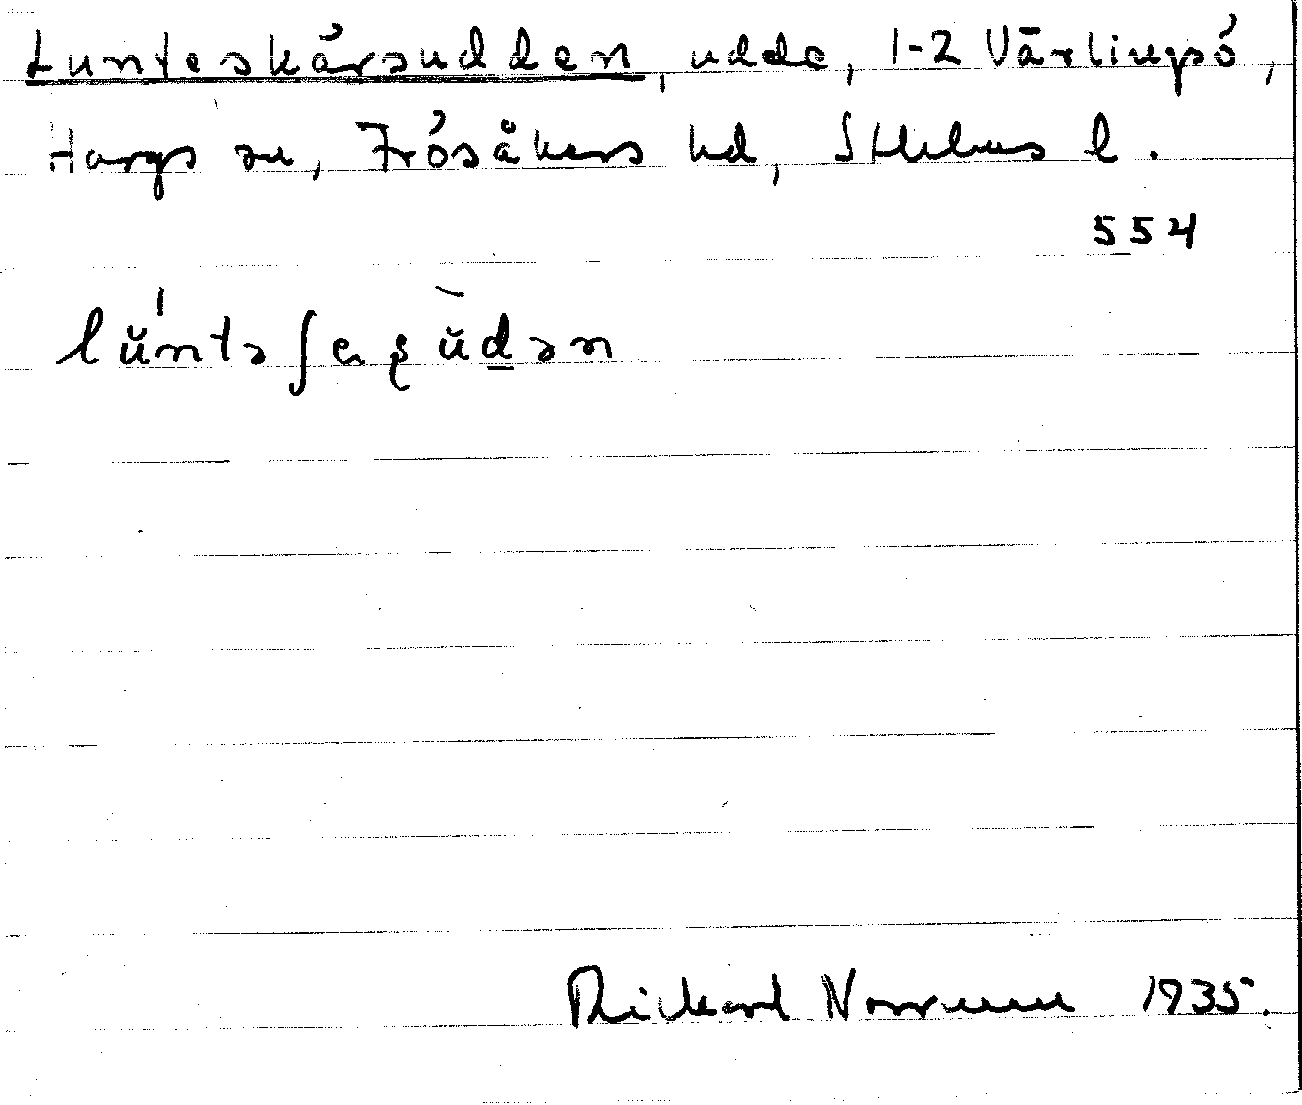 Lunteskärsudden, udde, 1-2 Värlingsö,
Hargs sn, Frösåkers hd, Sthlms l.
554
lŭ́ntəʃeʂŭ̀dən
Rickard Norrman 1935.